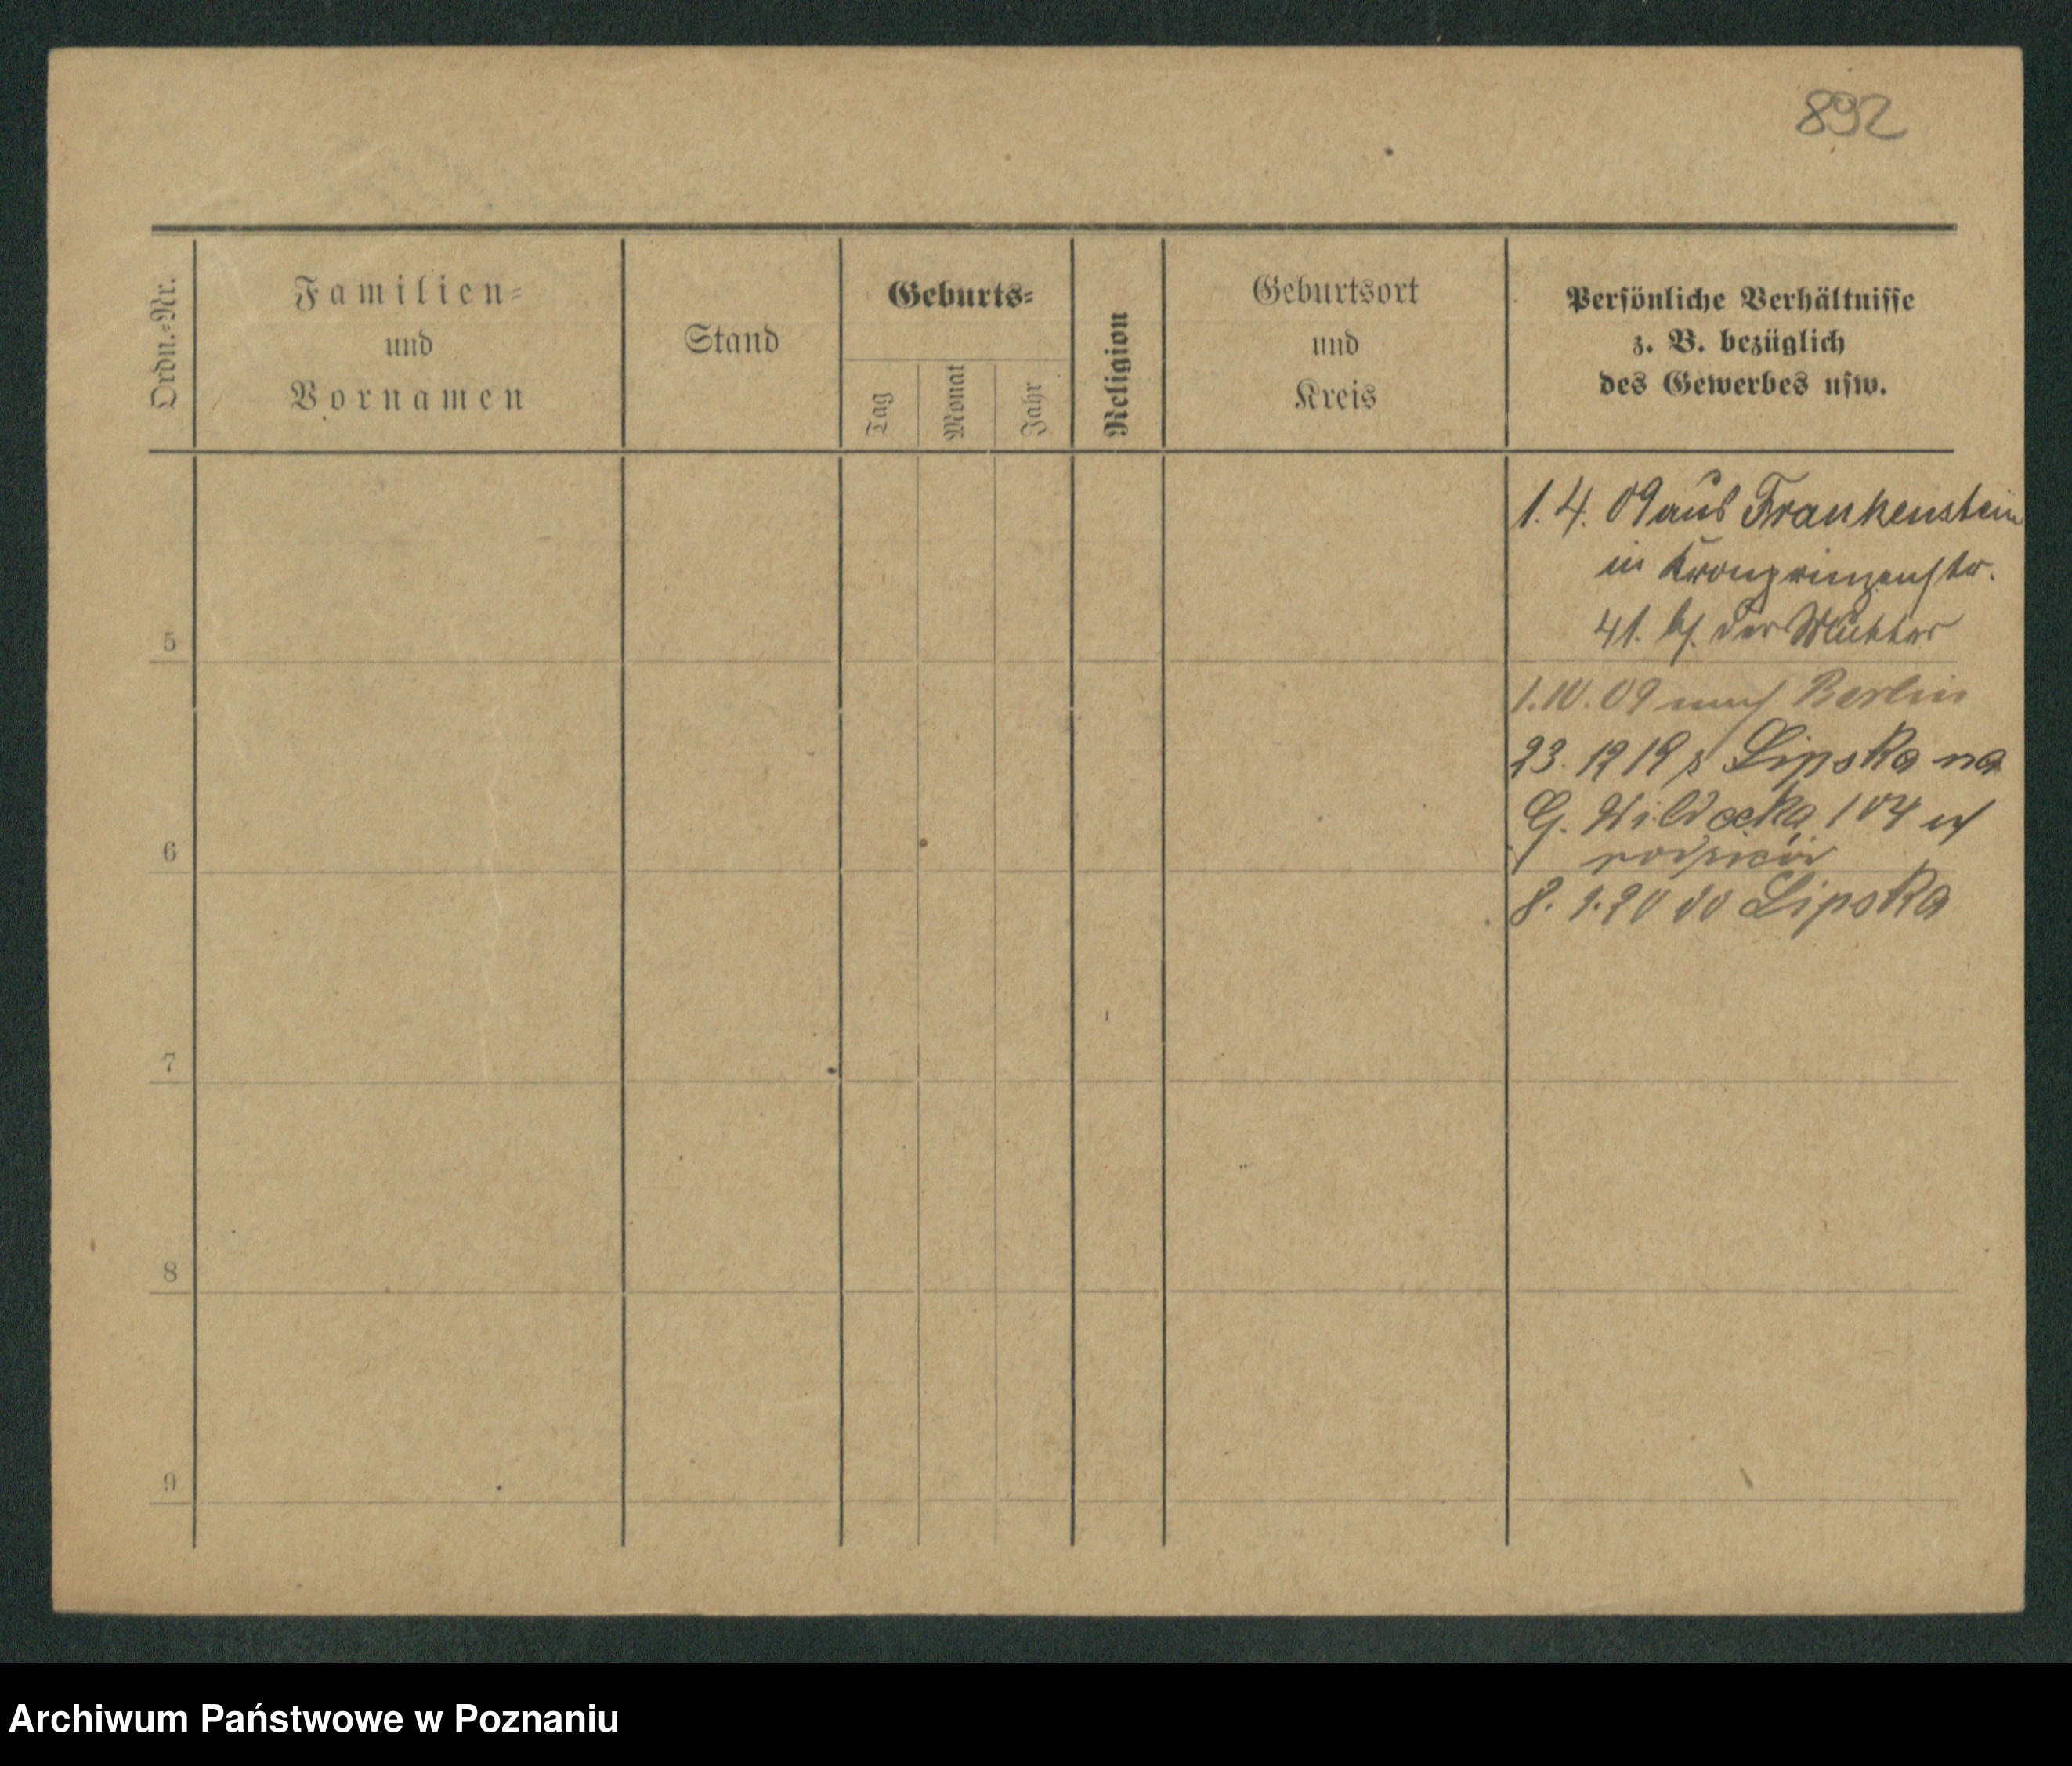 892
Ordn.-Nr.
Familien-
und
Vornamen
Stand
Geburts-
Tag
Monat
Jahr
Religion
Geburtsort
und
Kreis
Persönliche Verhältnisse
z. B. bezüglich
des Gewerbes usw.
1. 4. 09 aus Frankenstein
in Kronprinzenstr.
41. bf. der Mutter
5
1.10.09 nach Berlin
23. 12 19 z Lipska na
G. Wildecka 104
6
rodziców
8. 1.20 do Lipska
7
8
9
Archiwum Państwowe w Poznaniu